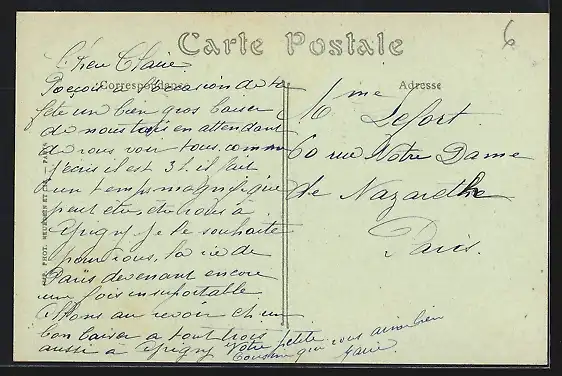 6
Carte Postale
Correspondance
Adresse
Chère Claire
Reçois à l'occasion de ta
fête un bien gros baiser
de nous tous en attendant
de vous voir tous. comme
j'écris il est 3 h. il fait
un temps magnifique
peut être êtes vous à
Épigny je le souhaite
pour vous, la vie de
Paris devenant encore
une fois insuportable
Allons au revoir et un
bon baiser a tout trois
aussi à Épigny Votre petite
Cousine qui vous aime bien
Marie.
Mme Lefort.
60 rue Notre Dame
de Nazareth
Paris.
IMP. PHOT. NEURDEIN ET CIE. — PARIS